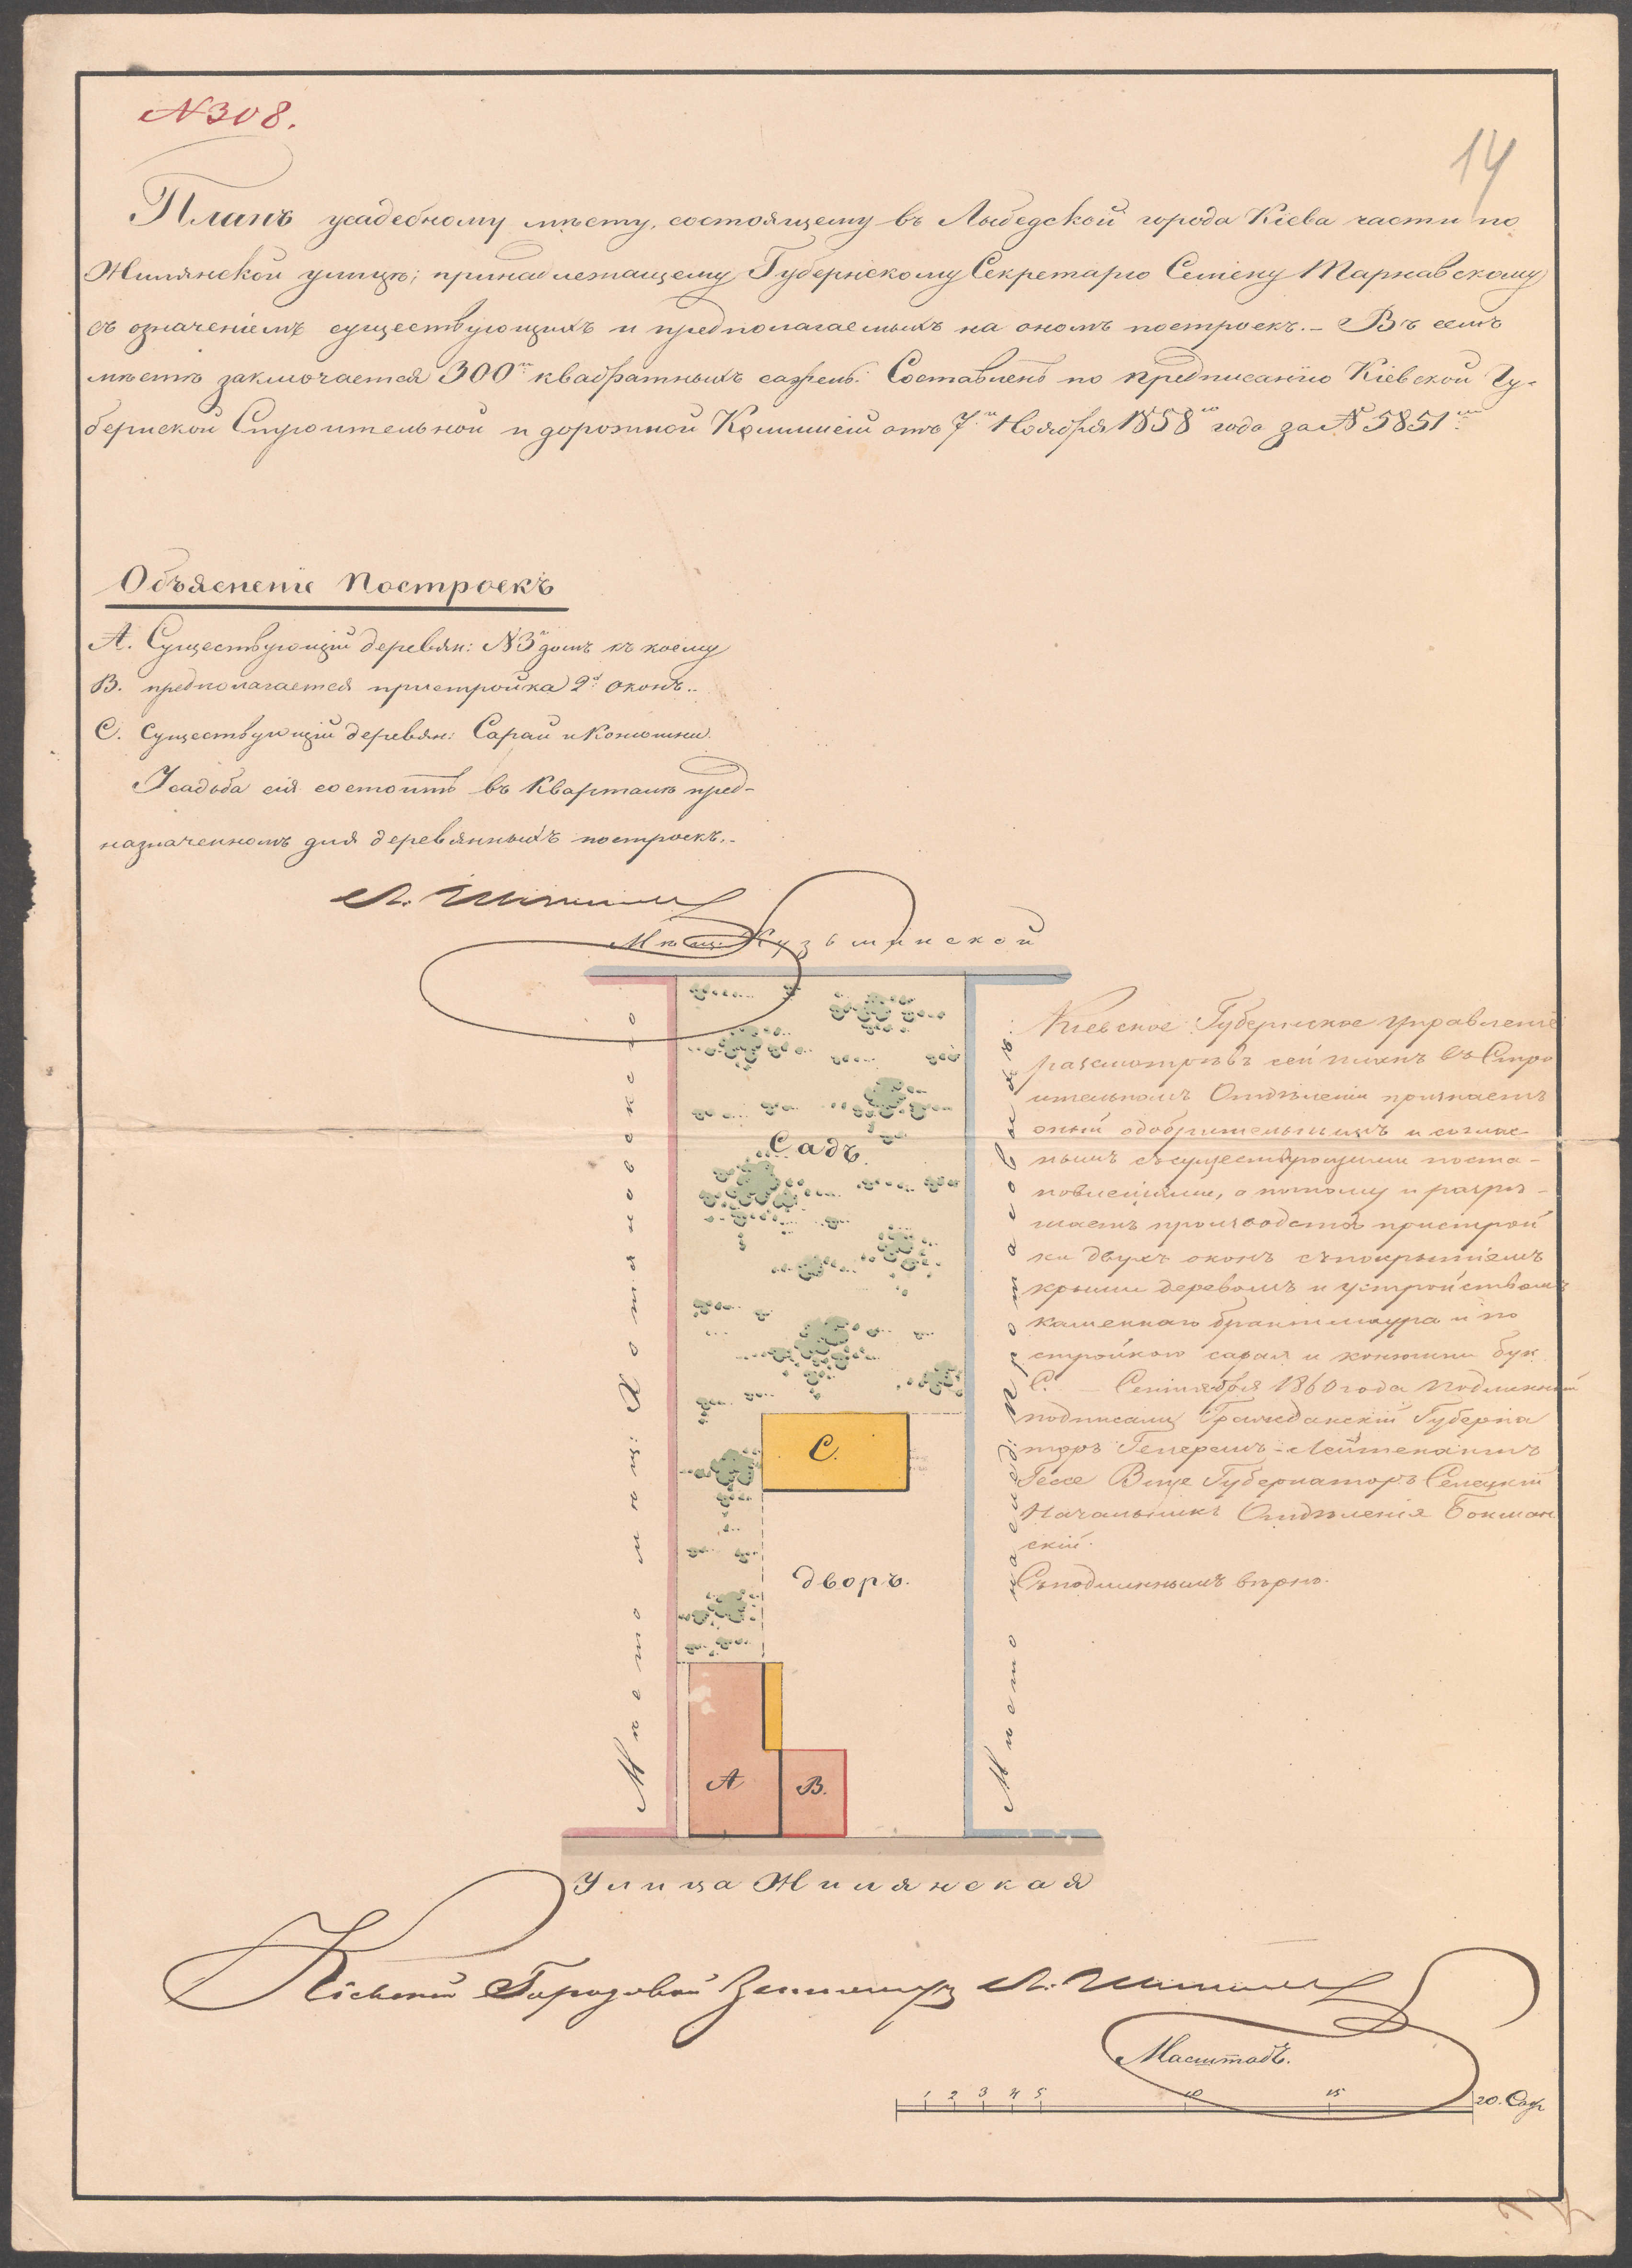 N 308.
14
Планъ усадебному мѣсту, состоящему въ Лыбедской города Кіева части по
Жилянской улицѣ; принадлежащему Губернскому Секретарю Семену Тарнавскому
съ означеніемъ существующихъ и предполагаемыхъ на ономъ построекъ. – Въ семъ
мѣстѣ заключается 300 квадратныхъ сажень. Составленъ по предписанію Кіевской Гу-
бернской Строительной и дорожной Коммисіи отъ 7 Ноября 1858 года за N 5851
Объясненіе Построекъ
А. Существующій деревян: N 3 домъ къ коему
В. предполагается пристройка 2 оконъ..
С. Существующій деревян: Сарай и Конюшни.
Усадьба сія состоитъ въ Кварталѣ пред-
назначенномъ для деревянныхъ построекъ. –
Мѣщ: Кузьминской
Кіевское Губернское Управленіе
разсмотрѣвъ сей планъ въ Стро
ительномъ Отдѣленіи признаетъ
оный одобрительнымъ и соглас
нымъ съ существующими поста-
новленіями, а потому и разрѣ-
шаетъ производство пристрой
ки двухъ оконъ съ покрытіемъ
крыши деревомъ и устройствомъ
каменнаго брантмаура и по
стройкою сарая и конюшни бук
С. – Сентября 1860 года Подлинный
подписали Гражданскій Губерна
торъ Генералъ-Лейтенантъ
Гессе Вице Губернаторъ Селецкій
Начальникъ Отдѣленія
скій.
Съ подлиннымъ вѣрно.
Мѣсто мѣщ: Хотяновскаго
Мѣсто наслед:
Садъ
С.
дворъ.
А
В.
Улица Жилянская
Кіевскій Городовой Землемѣръ
Масштабъ.
1 2 3 4 5 10 15 20. Саж